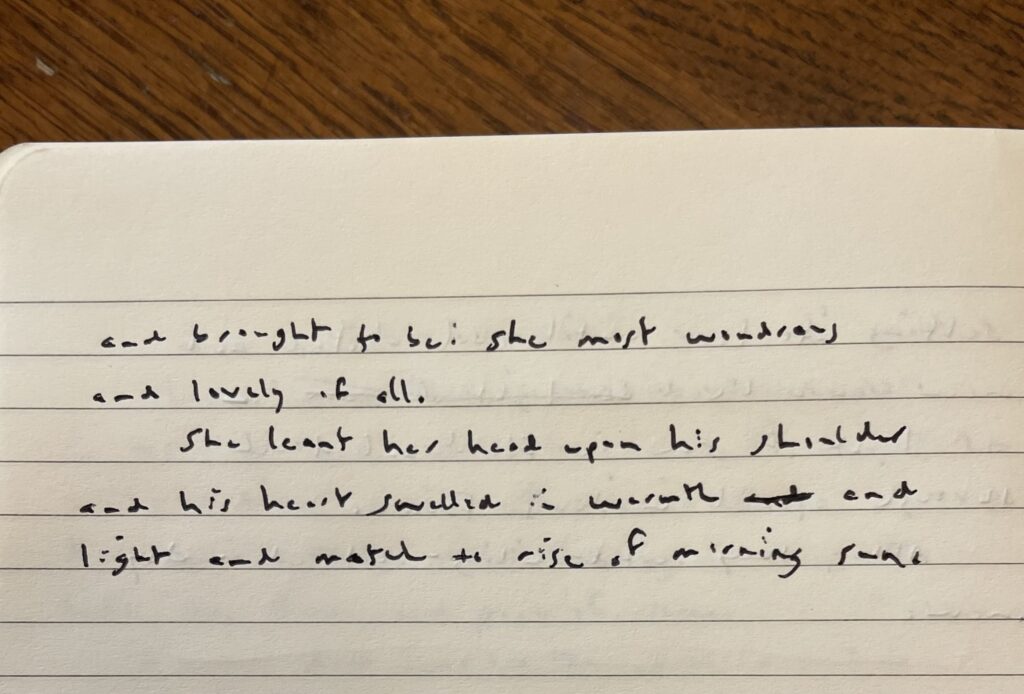 and brought to be: she most wondrous
and lovely of all.
She leant her head upon his shoulder
and his heart swelled in warmth and
light and match to rise of morning sun.